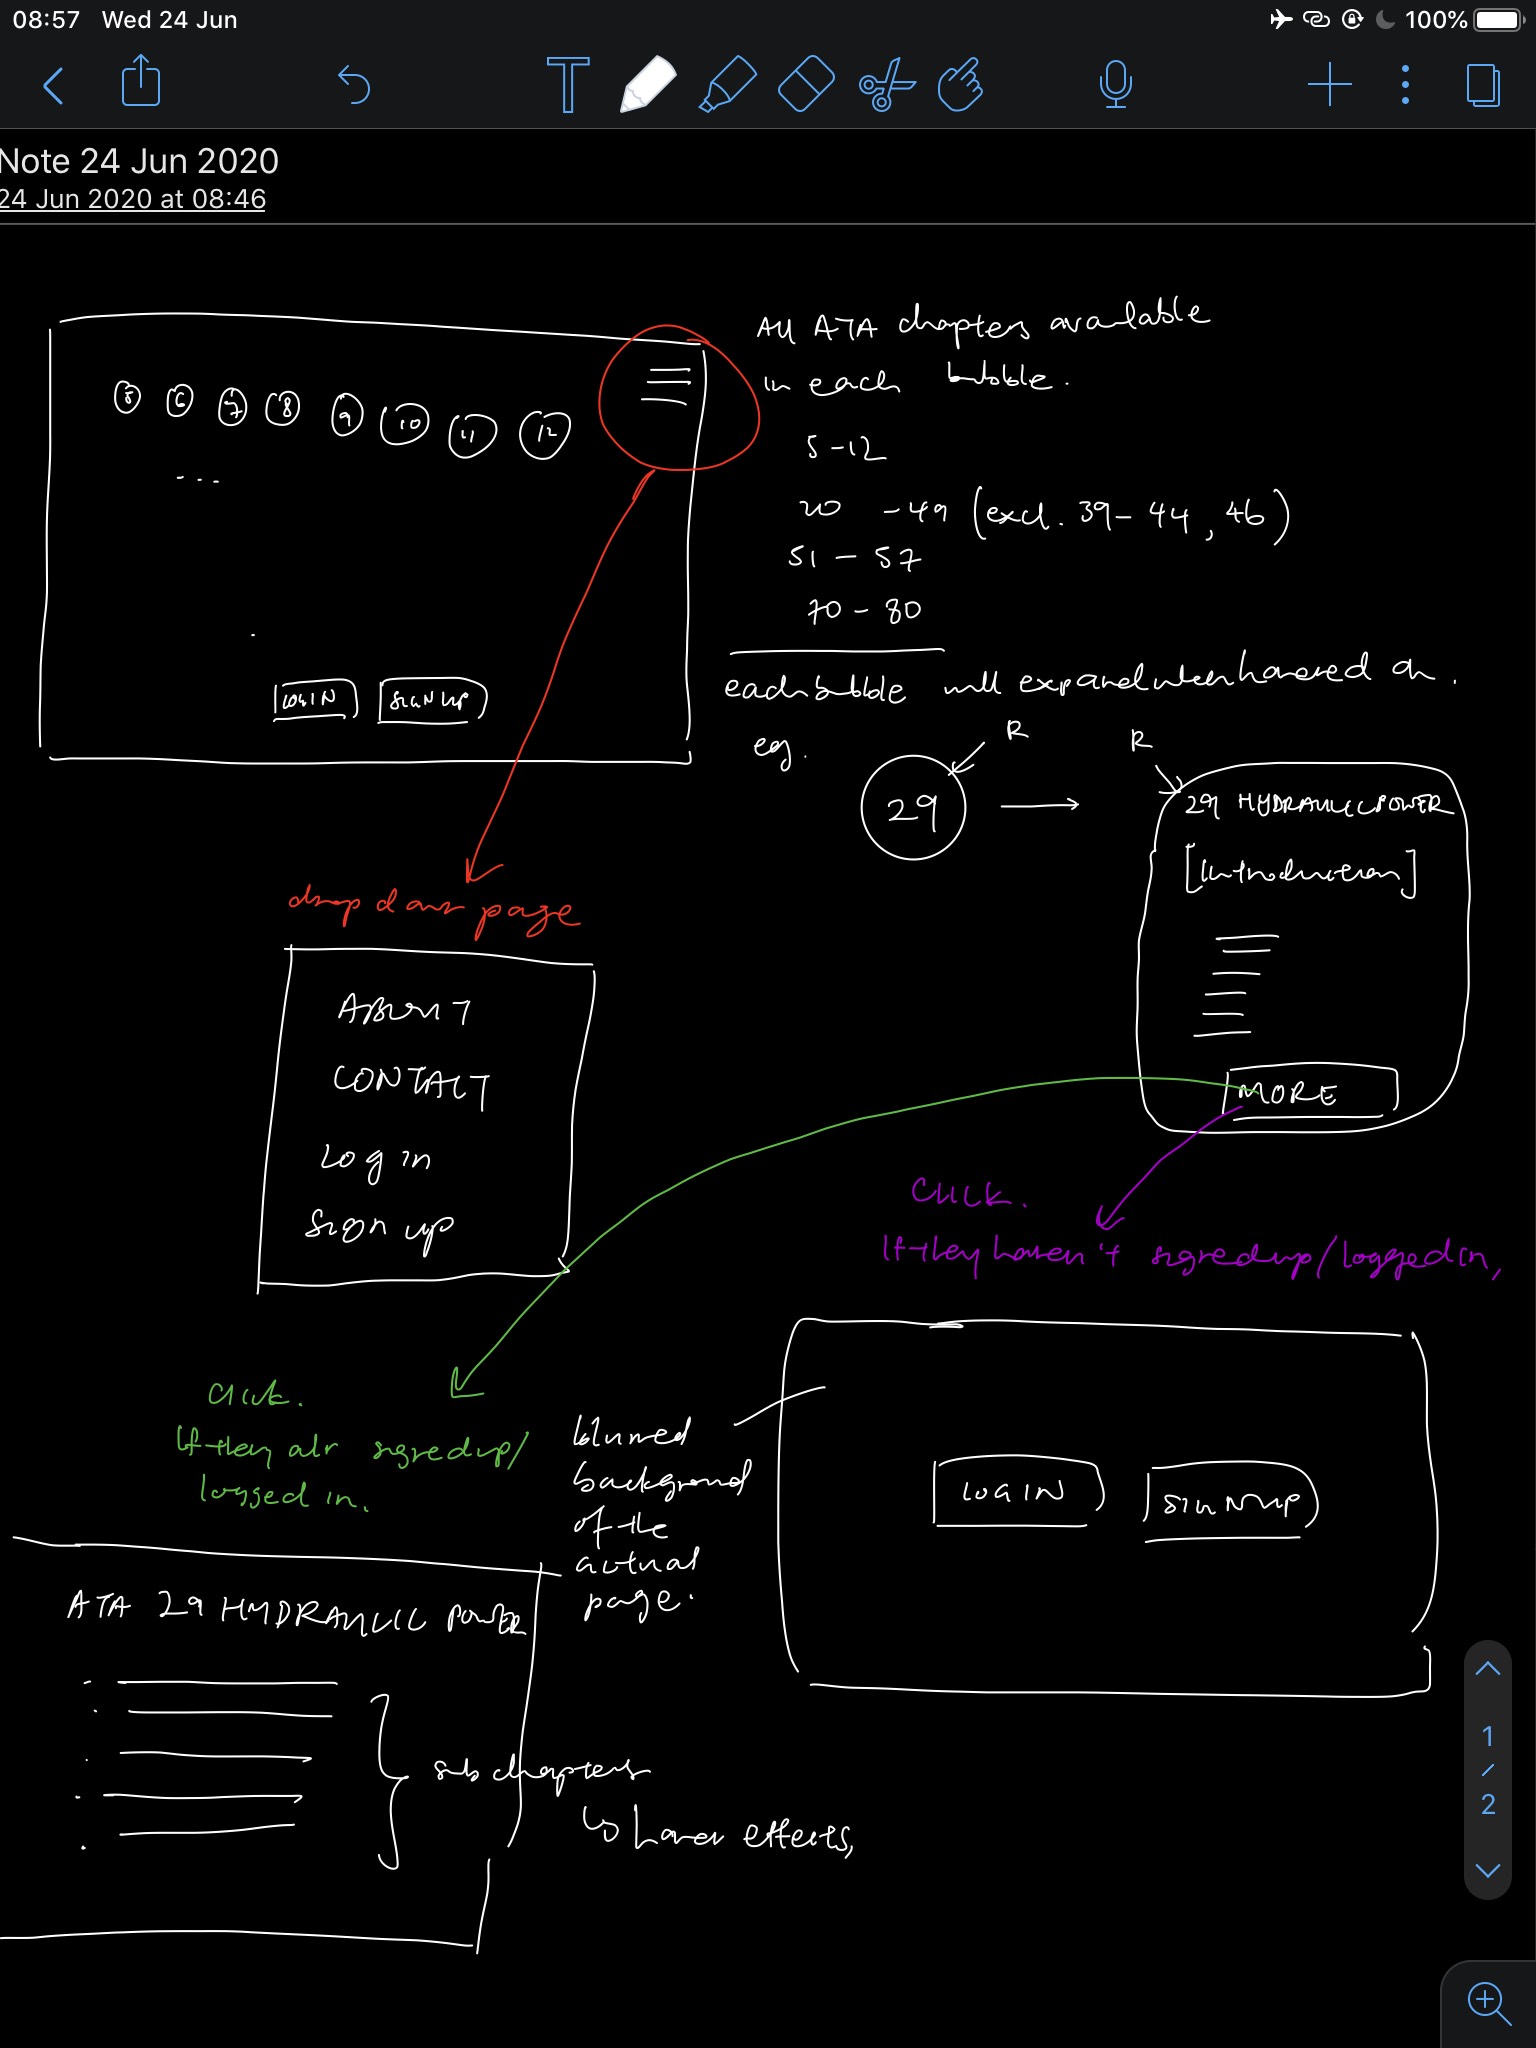 08:57 Wed 24 Jun
100%
T
Note 24 Jun 2020
24 Jun 2020 at 08:46
5 6 7 8 9 10 11 12
...
LOGIN
SIGN UP
All ATA chapters available
in each bubble.
5-12
20 -49 (excl. 39-44, 46)
51 - 57
70 - 80
each bubble will expand when hovered on.
eg.
R
29
R
29 HYDRAULIC POWER
[Introduction]
MORE
drop down page
ABOUT
CONTACT
Log in
Sign up
Click.
If they haven't signed up/logged in,
Click.
If they alr signed up/
logged in.
blurred
background
of the
actual
page.
LOGIN
SIGN UP
ATA 29 HYDRAULIC POWER
sub chapters
hover effects,
1
/
2